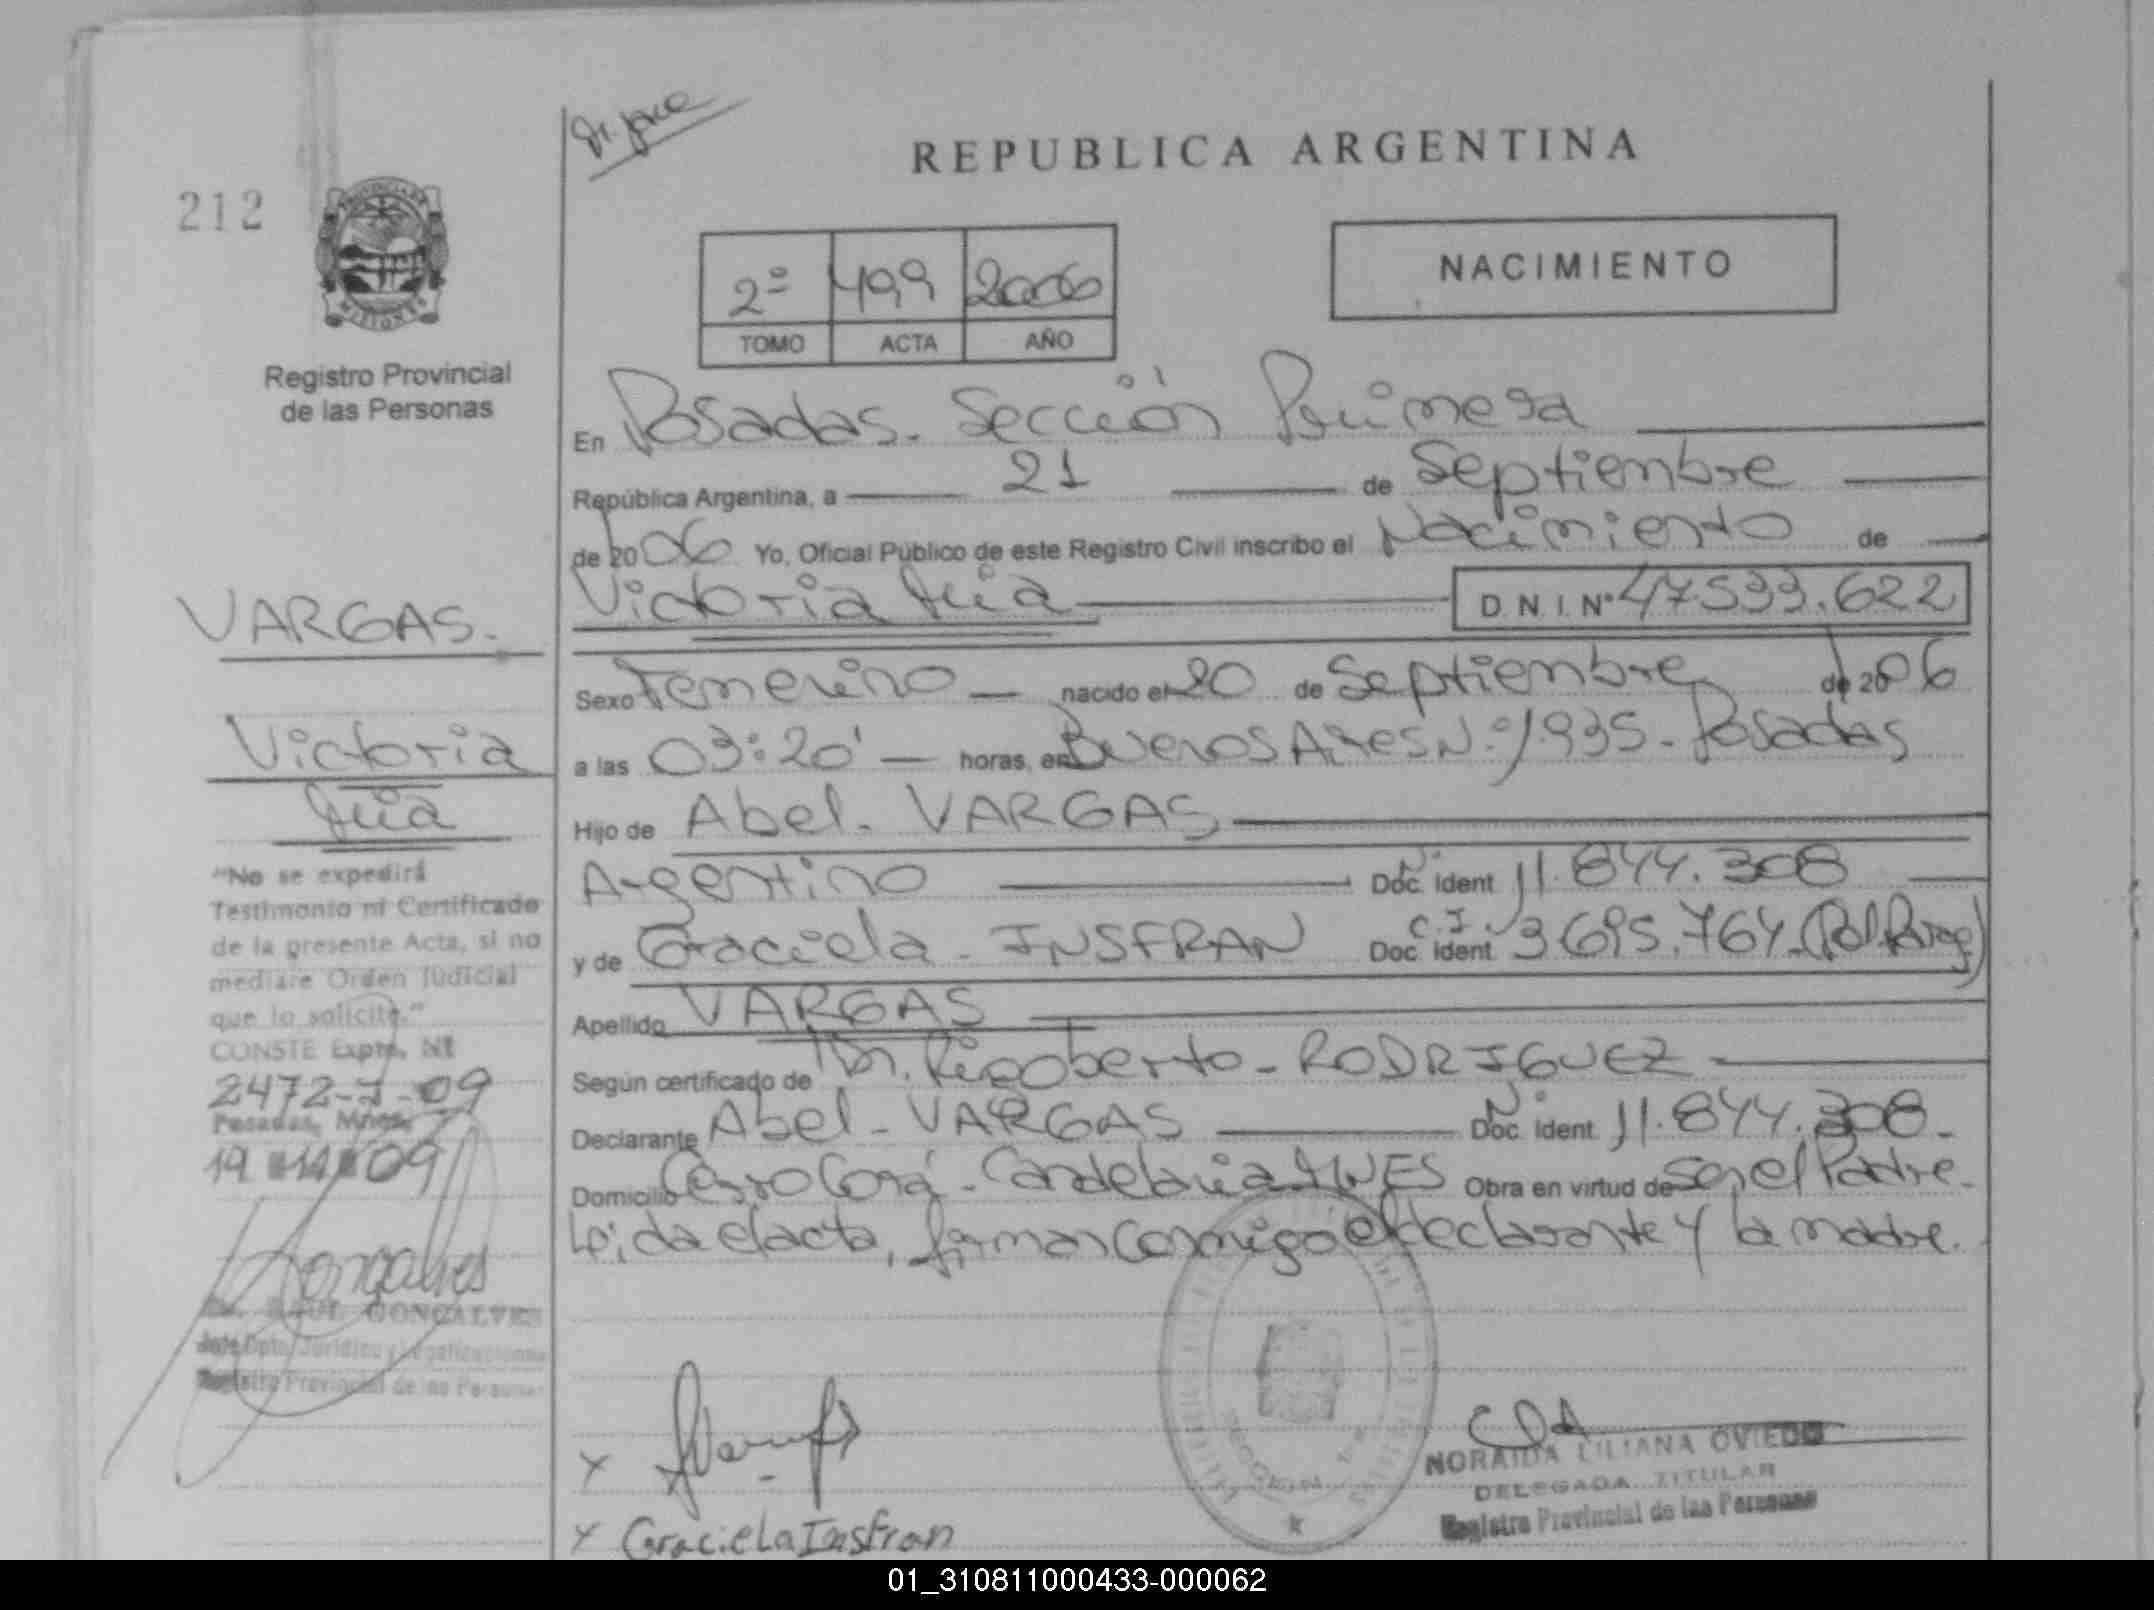 212
REPUBLICA ARGENTINA
2º 499 2006
TOMO ACTA AÑO
NACIMIENTO
Registro Provincial
de las Personas
En Posadas. Sección Primera
República Argentina, a 21 de Septiembre
de 2006 Yo, Oficial Público de este Registro Civil inscribo el Nacimiento de
Victoria D.N.I. Nº 47.533.622
VARGAS.
Victoria
Sexo Femenino nacido el 20 de Septiembre de 2006
a las 03:20' horas, en Buenos Aires N.º 1.935 - Posadas
Hijo de Abel. VARGAS
Argentino Doc. Ident. 11.844.308
y de Graciela - INSFRAN C.I. Doc. Ident. 3695.764
Apellido VARGAS
Según certificado de Dr. Rigoberto - RODRIGUEZ
Declarante Abel - VARGAS Doc. Ident. 11.844.308.
Domicilio Cerro Corá - Candelaria Obra en virtud de Ser el Padre.
Leida el acta, firman conmigo el declarante y la madre.
"No se expedirá
Testimonio ni Certificado
de la presente Acta, si no
mediare Orden Judicial
que lo solicite."
CONSTE Expte. Nº
2472-J-09
Posadas, Mnes,
19 11 09
Gonçalves
Dr. RAUL GONÇALVES
Jefe Dpto. Jurídico y Legalizaciones
Registro Provincial de las Personas
NORAIDA LILIANA OVIEDO
DELEGADA TITULAR
Registro Provincial de las Personas
x
x Graciela Insfran
01_310811000433-000062